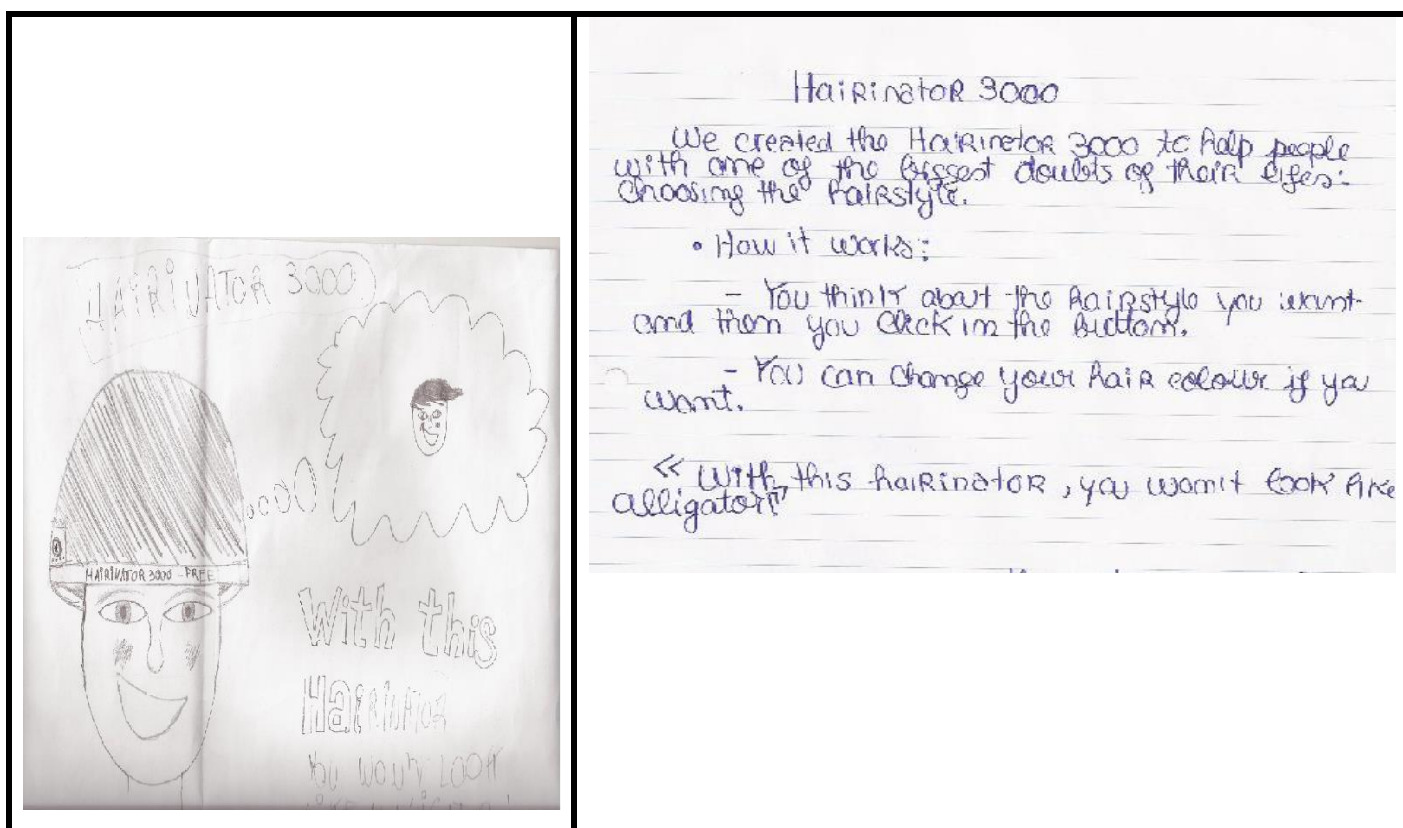 HAIRINATOR 3000
HAIRINATOR 3000 - FREE
With this
HAIRINATOR
you won't look
Hairinator 3000
We created the Hairinator 3000 to help people
with one of the biggest doubts of their lifes:
choosing the hairstyle.
• How it works:
- You think about the hairstyle you want
and then you click in the buttom.
- You can change your hair colour if you
want.
<< With this hairinator, you won't look like
alligator!"